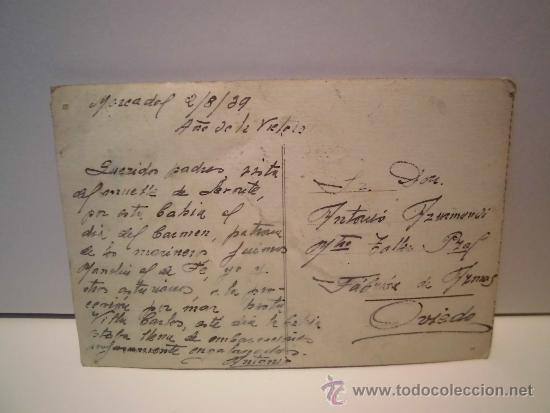 Mercadal 2/8/39
Año de la Victoria
Queridos padres vista
del muelle de
por esta bahia el
dia del Carmen, patrona
de los marineros fuimos
el de yo y
tres asturianos a la pro-
cesión por mar hasta
Villa Carlos, este dia la bahia
estaba llena de embarcaciones
engalanadas.
Antonio
Sr. Don.
Antonio
Mtro Taller
Fábrica de Armas
Oviedo
todocoleccion
www.todocoleccion.net